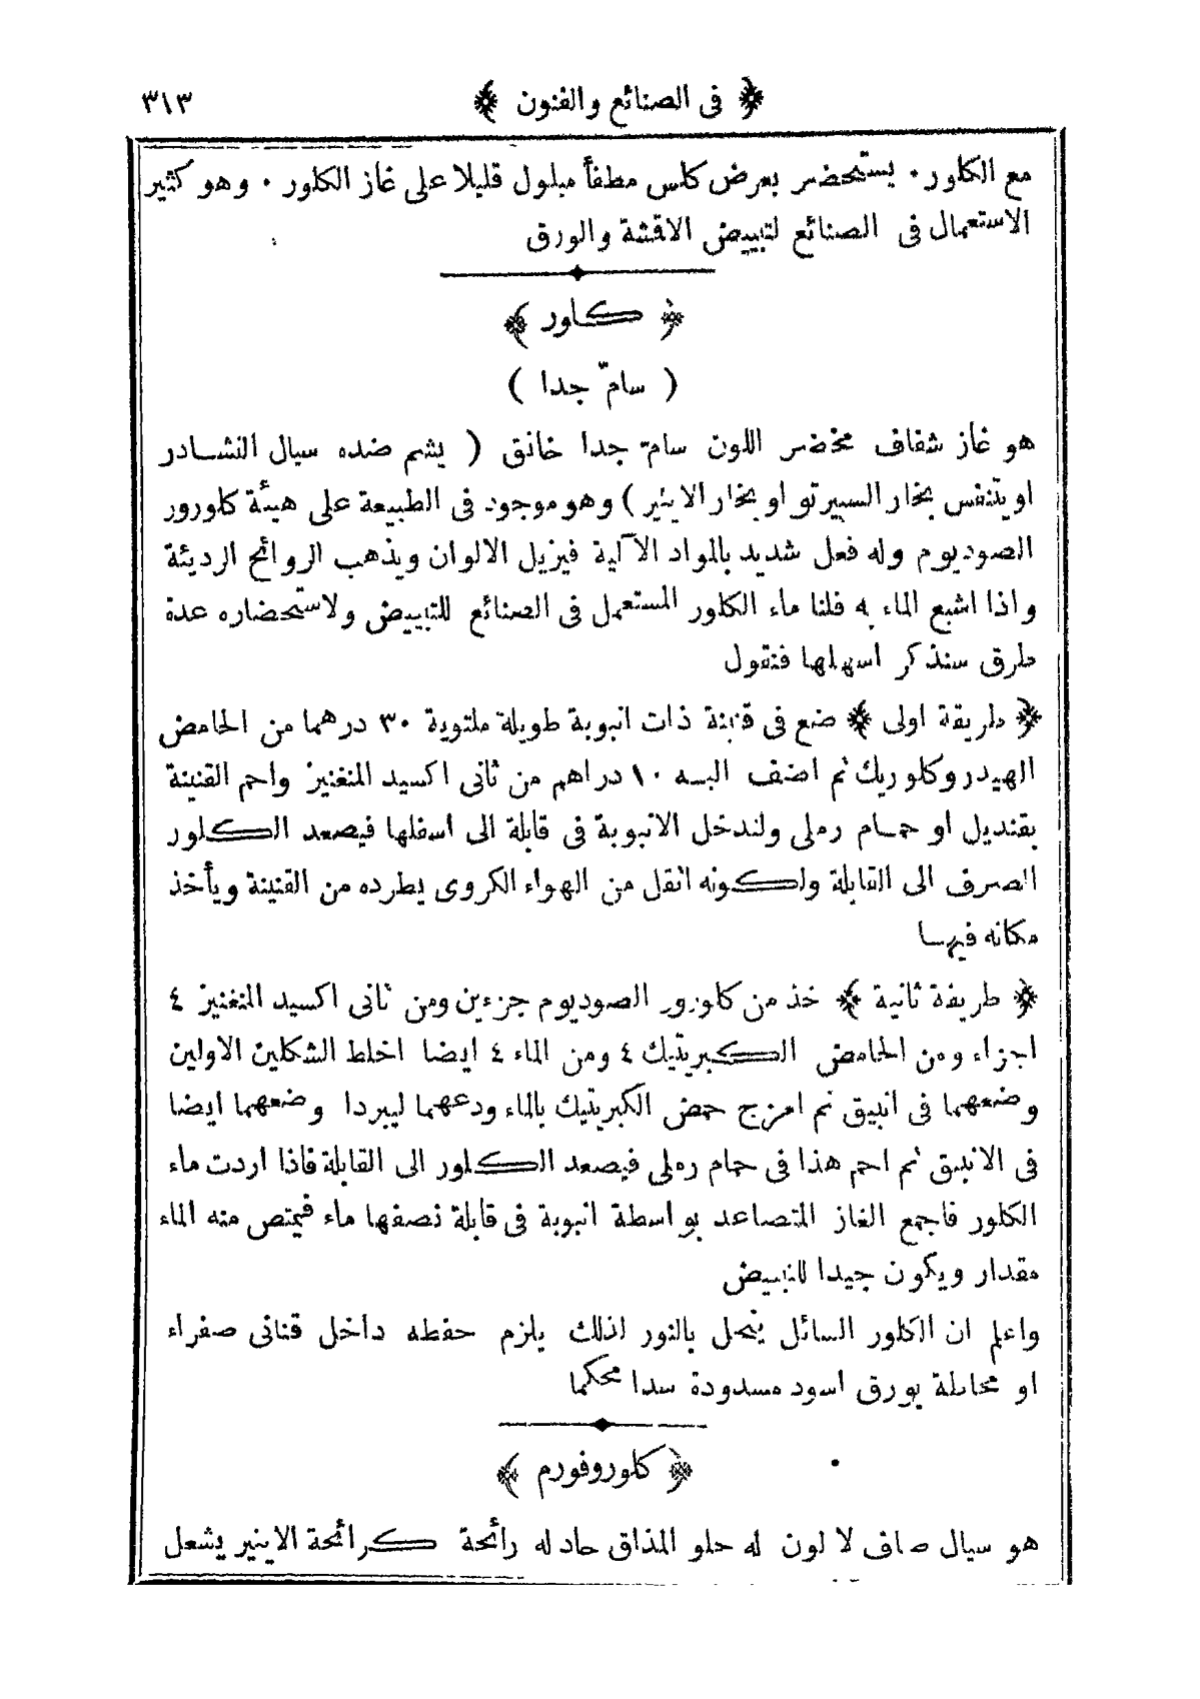 ﴿ فى الصنائع والفنون ﴾ ٣١٣
مع الكلور . يستحضر بعرض كلس مطفأ مبلول قليلا على غاز الكلور . وهو كثير
الاستعمال فى الصنائع لتبييض الاقشة والورق
﴿ كلور ﴾
( سامّ جدا )
هو غاز شفاف مخضر اللون سامّ جدا خانق ( يشم ضده سيال النشادر
او يتنفس بخار السبيرتو او بخار الايثير ) وهو موجود فى الطبيعة على هيئة كلورور
الصوديوم وله فعل شديد بالمواد الآلية فيزيل الالوان ويذهب الروائح الرديئة
واذا اشبع الماء به قلنا ماء الكلور المستعمل فى الصنائع للتبييض ولاستحضاره عدة
طرق سنذكر اسهلها فنقول
﴿ طريقة اولى ﴾ ضع فى قنينة ذات انبوبة طويلة ملتوية ٣٠ درهما من الحامض
الهيدروكلوريك ثم اضف اليه ١٠ دراهم من ثانى اكسيد المنغنيز واحم القنينة
بقنديل او حمام رملى ولندخل الانبوبة فى قابلة الى اسفلها فيصعد الكلور
الصرف الى القابلة ولكونه اثقل من الهواء الكروى يطرده من القنينة ويأخذ
مكانه فيها
﴿ طريقة ثانية ﴾ خذ من كلورور الصوديوم جزءين ومن ثانى اكسيد المنغنيز ٤
اجزاء ومن الحامض الكبريتيك ٤ ومن الماء ٤ ايضا اخلط الشكلين الاولين
وضعهما فى انبيق ثم امزج حمض الكبريتيك بالماء ودعهما ليبردا وضعهما ايضا
فى الانبيق ثم احم هذا فى حمام رملى فيصعد الكلور الى القابلة فاذا اردت ماء
الكلور فاجمع الغاز المتصاعد بواسطة انبوبة فى قابلة نصفها ماء فيمتص منه الماء
مقدار ويكون جيدا للتبييض
واعلم ان الكلور السائل ينحل بالنور لذلك يلزم حفظه داخل قنانى صفراء
او محاطة بورق اسود مسدودة سدا محكما
﴿ كلوروفورم ﴾
هو سيال صاف لا لون له حلو المذاق حاد له رائحة كرائحة الايثير يشعل